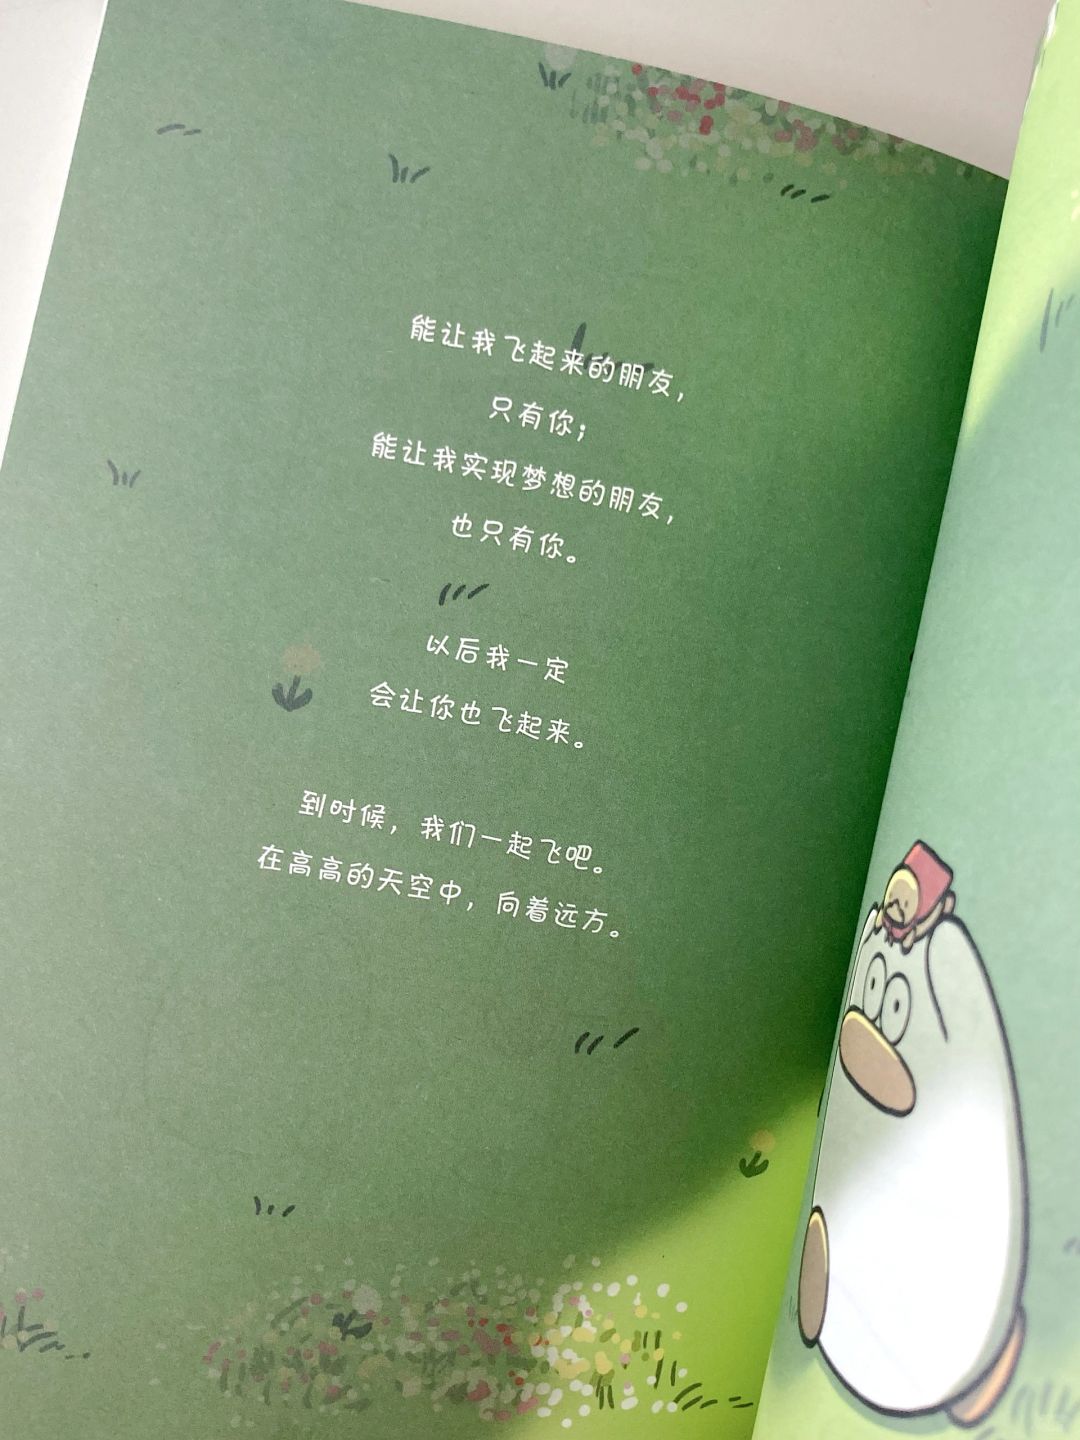 能让我飞起来的朋友，
只有你；
能让我实现梦想的朋友，
也只有你。
以后我一定
会让你也飞起来。
到时候，我们一起飞吧。
在高高的天空中，向着远方。